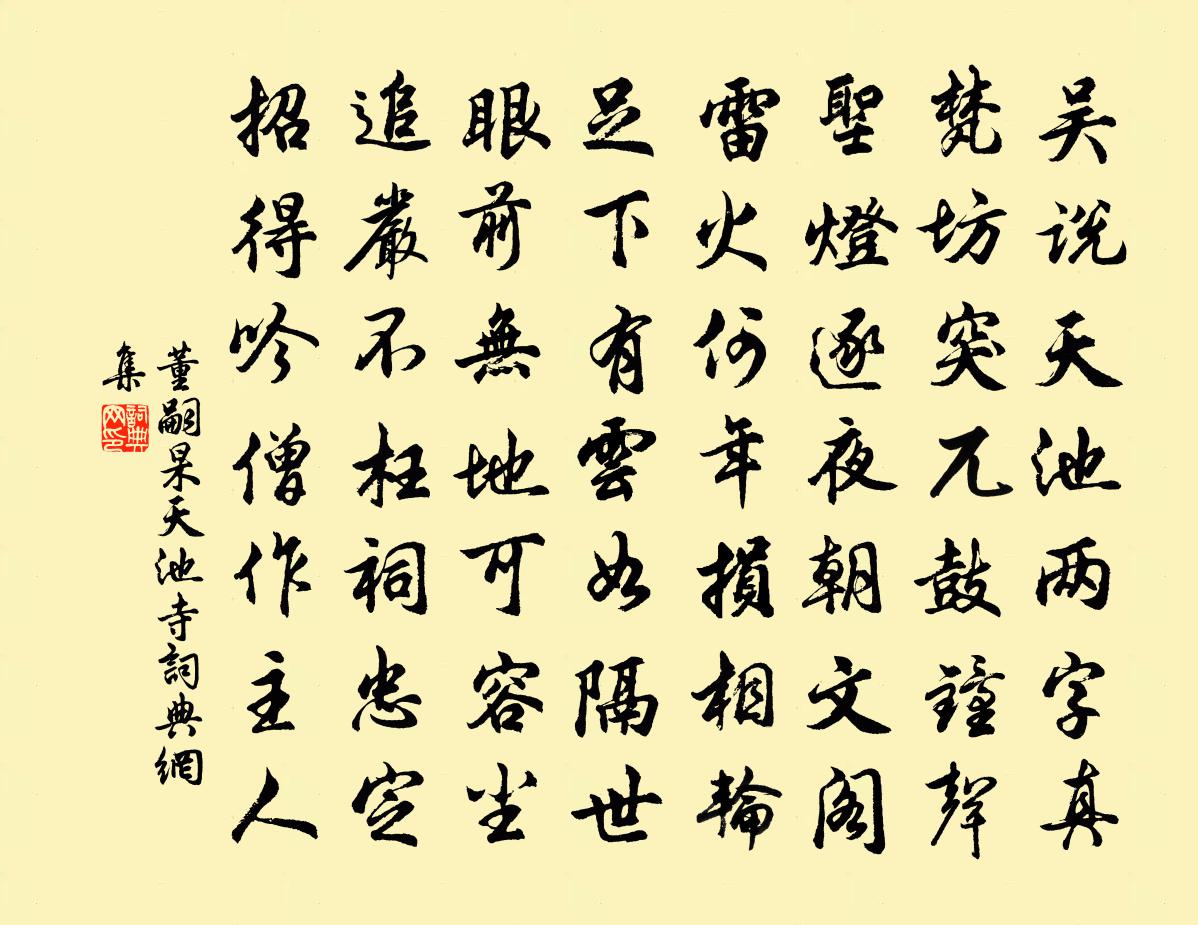 吴说天池两字真
梵坊突兀鼓鐘聲
聖燈逐夜朝文阁
雷火何年損相輪
足下有雲如隔世
眼前無地可容尘
追嚴不枉祠忠定
招得吟僧作主人
董嗣杲天池寺詞典網
集
詞典网印